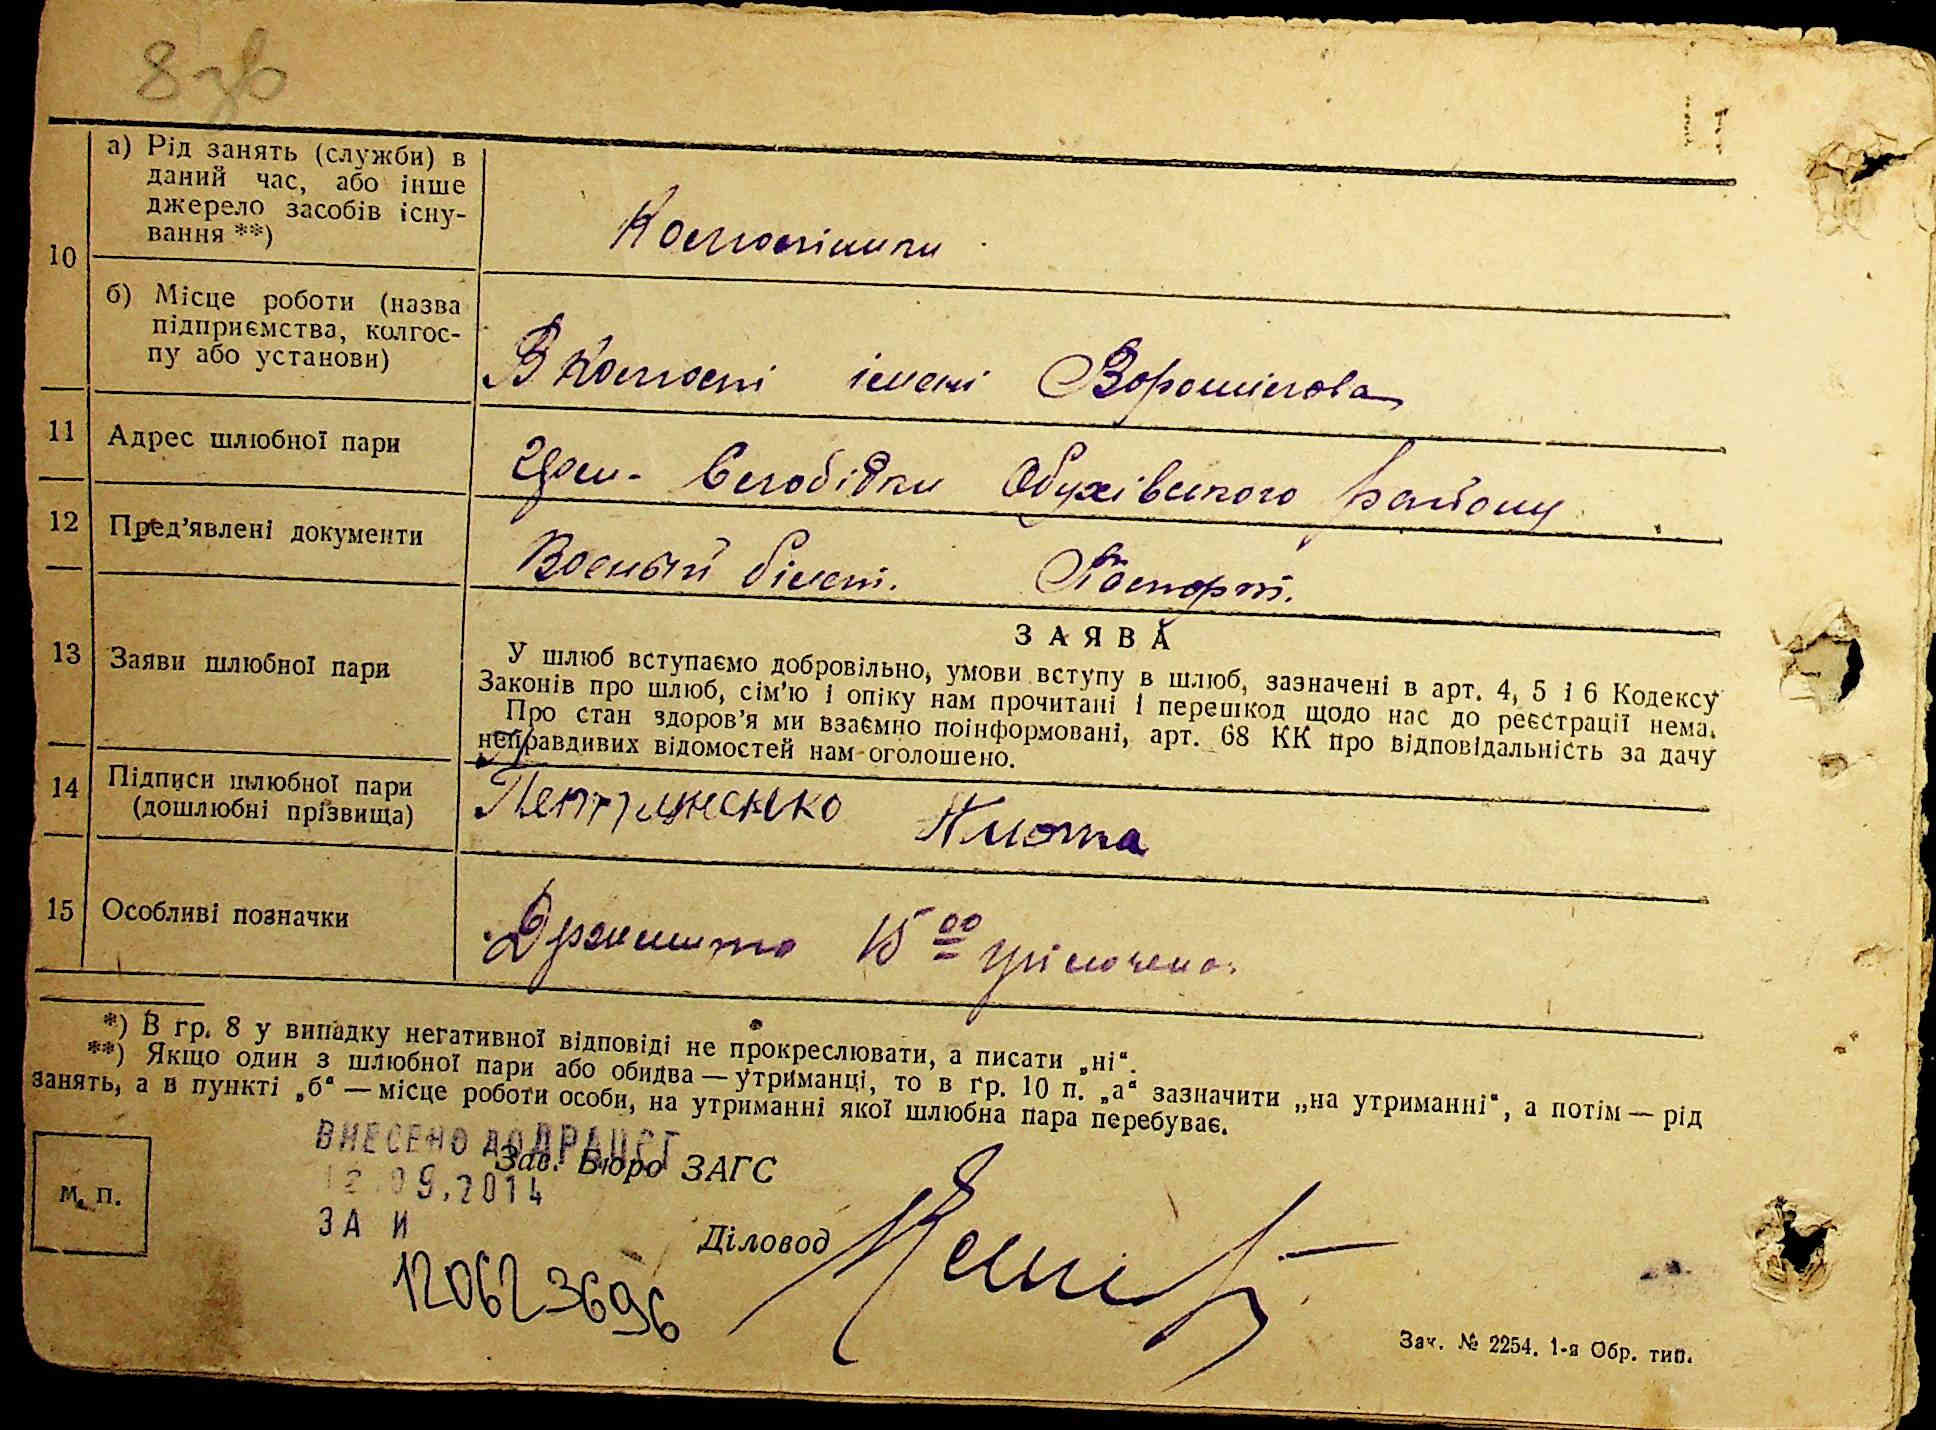 8 зв
10
а) Рід занять (служби) в
даний час, або інше
джерело засобів існу-
вання **)
Колгоспники
б) Місце роботи (назва
підприємства, колгос-
пу або установи)
В Колгоспі імені Ворошилова
11 Адрес шлюбної пари
Слобідки Обухівського району
12 Пред'явлені документи
Военый білет. Паспорт.
13 Заяви шлюбної пари
ЗАЯВА
У шлюб вступаємо добровільно, умови вступу в шлюб, зазначені в арт. 4, 5 і 6 Кодексу
Законів про шлюб, сім'ю і опіку нам прочитані і перешкод щодо нас до реєстрації нема.
Про стан здоров'я ми взаємно поінформовані, арт. 68 КК про відповідальність за дачу
неправдивих відомостей нам оголошено.
14 Підписи шлюбної пари
(дошлюбні прізвища)
15 Особливі позначки
15 00
*) В гр. 8 у випадку негативної відповіді не прокреслювати, а писати „ні“.
**) Якщо один з шлюбної пари або обидва — утриманці, то в гр. 10 п. „а“ зазначити „на утриманні“, а потім — рід
занять, а в пункті „б“ — місце роботи особи, на утриманні якої шлюбна пара перебуває.
ВНЕСЕНО ДО ДРАЦСГ
Зав. Бюро ЗАГС
12.09.2014
М. П.
ЗА И
Діловод
120623696
Зач. № 2254. 1-я Обр. тип.